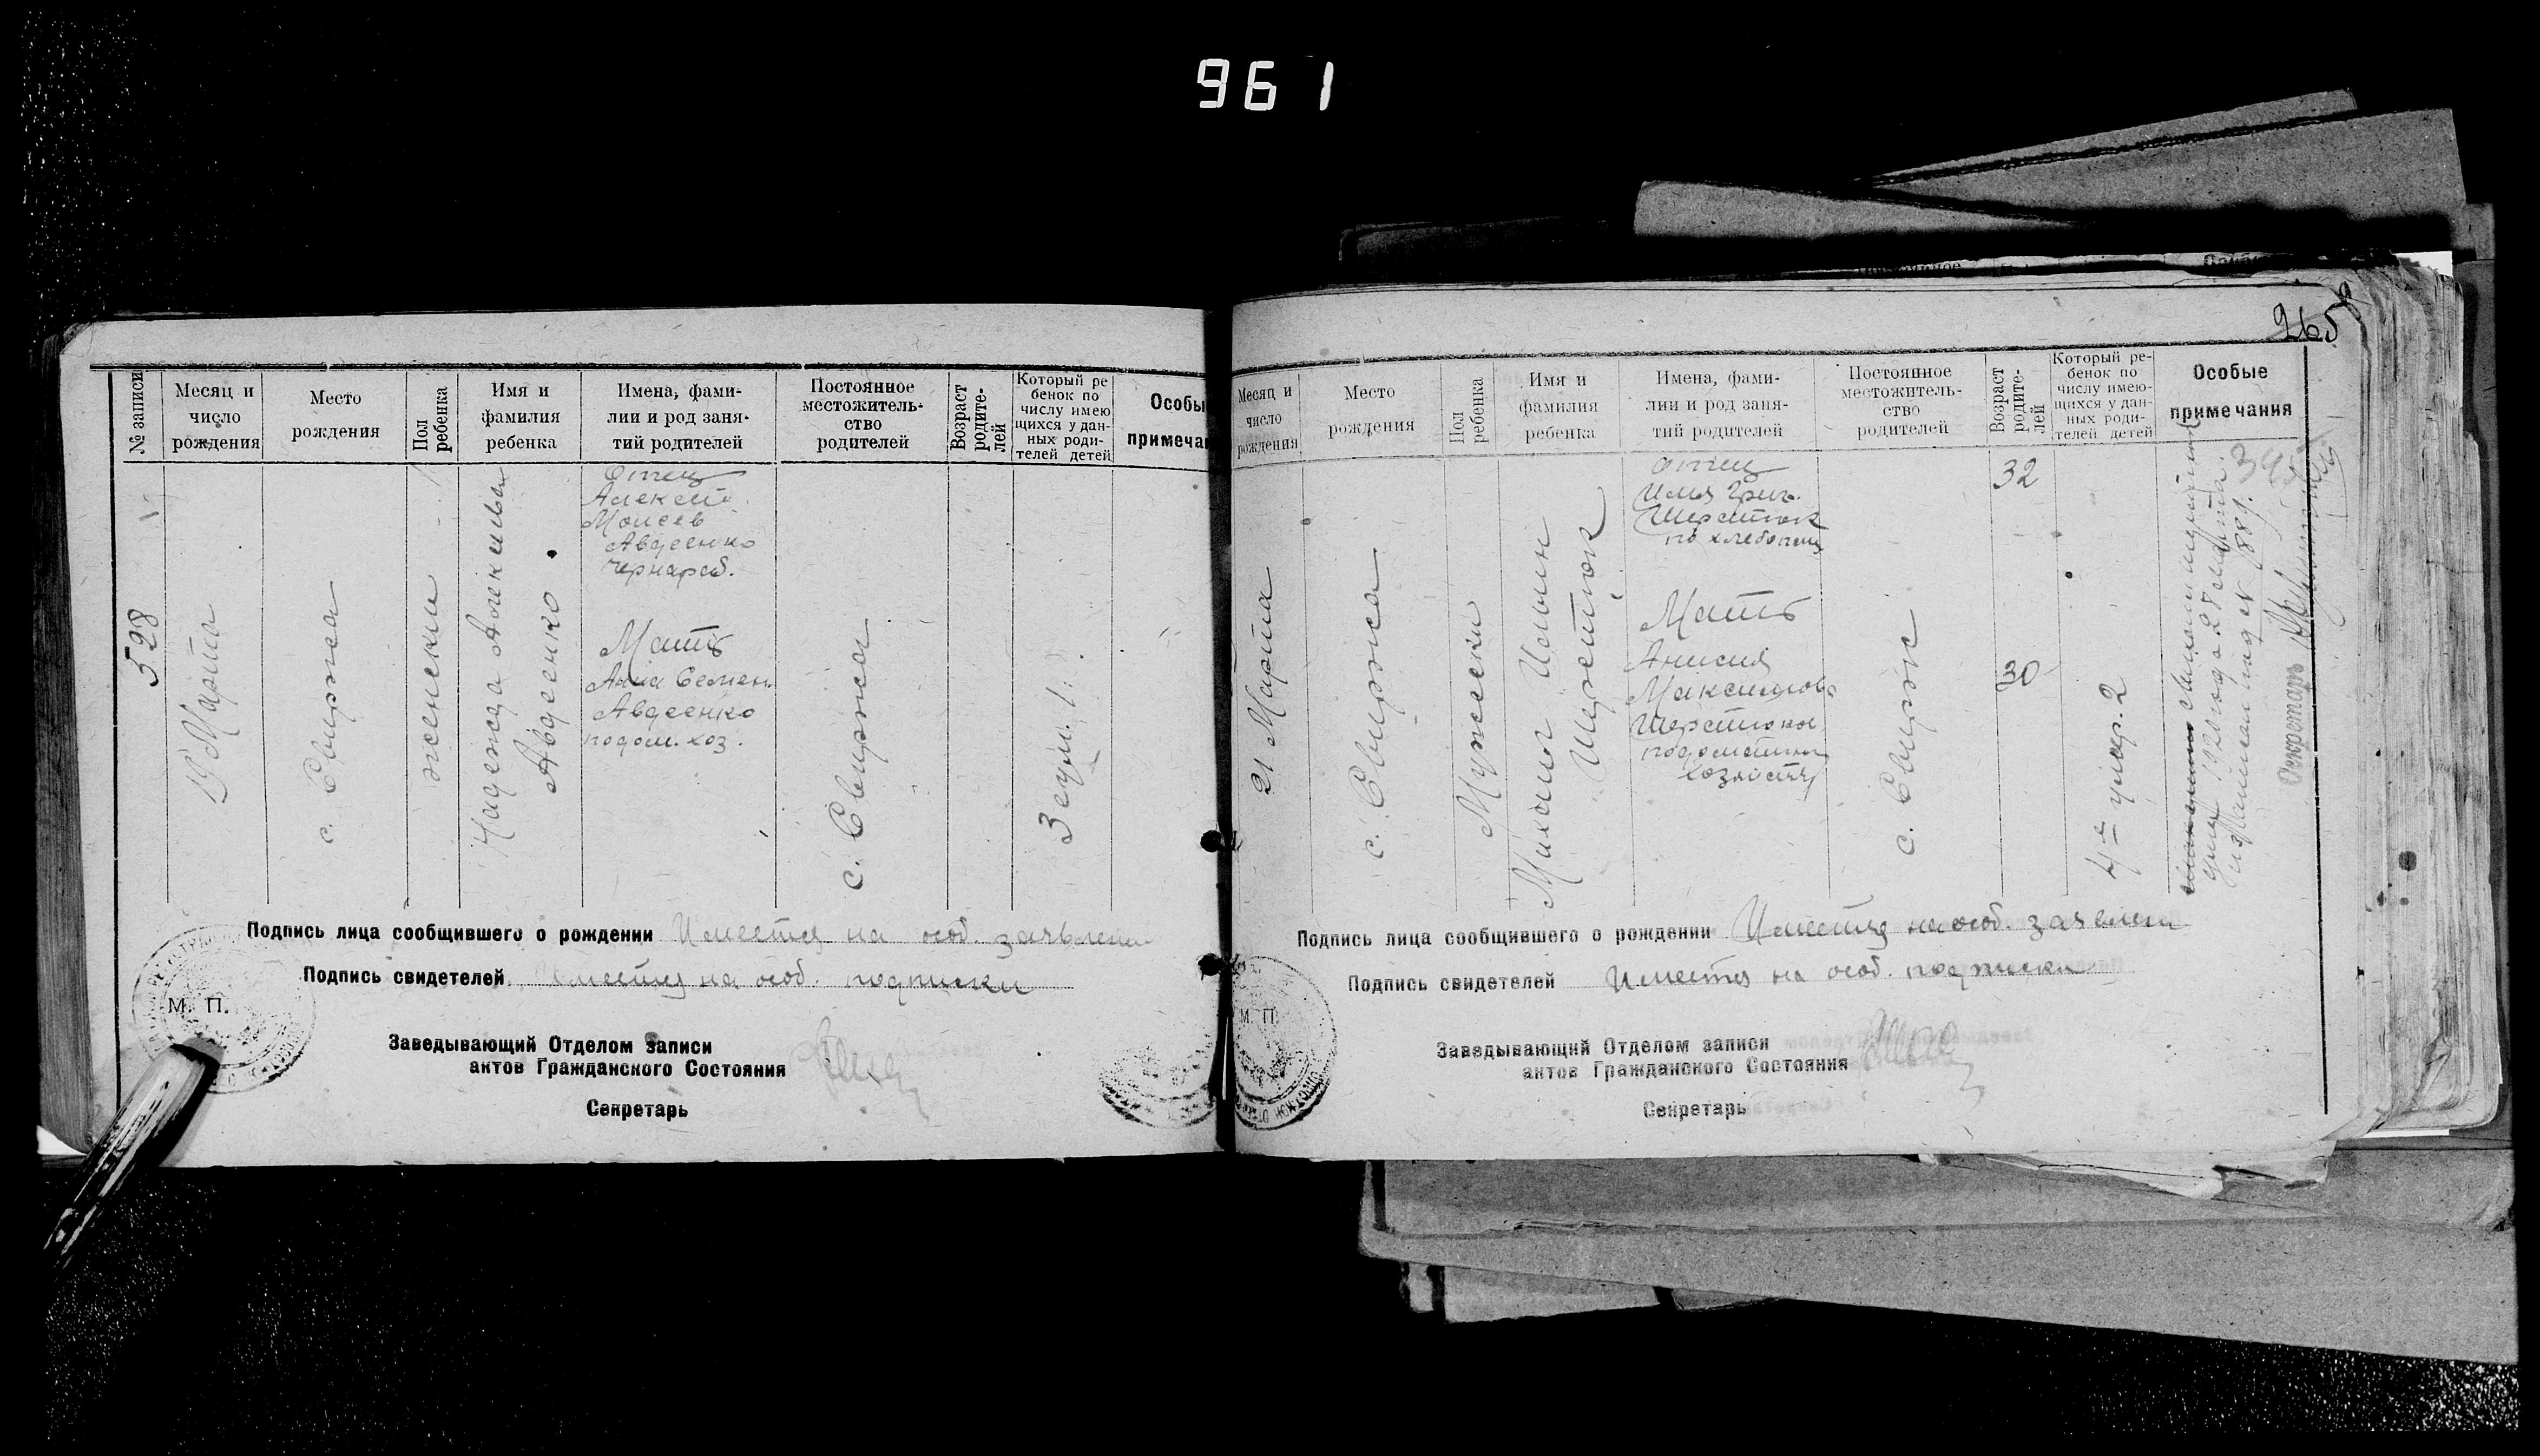 961
№ записи
Месяц и
число
рождения
Место
рождения
Пол
ребенка
Имя и
фамилия
ребенка
Имена, фами-
лии и род заня-
тий родителей
Постоянное
местожитель-
ство
родителей
Возраст
родите-
лей
Который ре
бенок по
числу имею
щихся у дан-
ных роди-
телей детей
Особы
примеча
528
19 Марта
с. Свиржа
женски
Надежда
Авдеенко
Отец
Алексей
Моисев
Авдеенко
чернораб.
Мать
Анна Семен.
Авдеенко
подом. хоз.
с. Свиржа
3 ум. 1.
Подпись лица сообщившего о рождении Имеется на особ. заявлении
Подпись свидетелей Имеется на особ. подписки
М. П.
Заведывающий Отделом записи
актов Гражданского Состояния
Секретарь
265
Месяц и
число
рождения
Место
рождения
Пол
ребенка
Имя и
фамилия
ребенка
Имена, фами-
лии и род заня-
тий родителей
Постоянное
местожитель-
ство
родителей
Возраст
родите-
лей
Который ре-
бенок по
числу имею-
щихся у дан-
ных роди-
телей детей
Особые
примечания
21 Марта
с. Свиржа
Мужски
Михаил Ильин
Шерстюк
Отец
Илья Григ.
Шерстюк
по хлебопаш
Мать
Анисия
Максимов
Шерстюк
подомашн
хозяйству
с. Свирж
32
30
4й умер. 2
Секретарь
Подпись лица сообщившего о рождении Имеется на особ. заявлен
Подпись свидетелей Имеется на особ. подписки
М. П.
Заведывающий Отделом записи
актов Гражданского Состояния
Секретарь